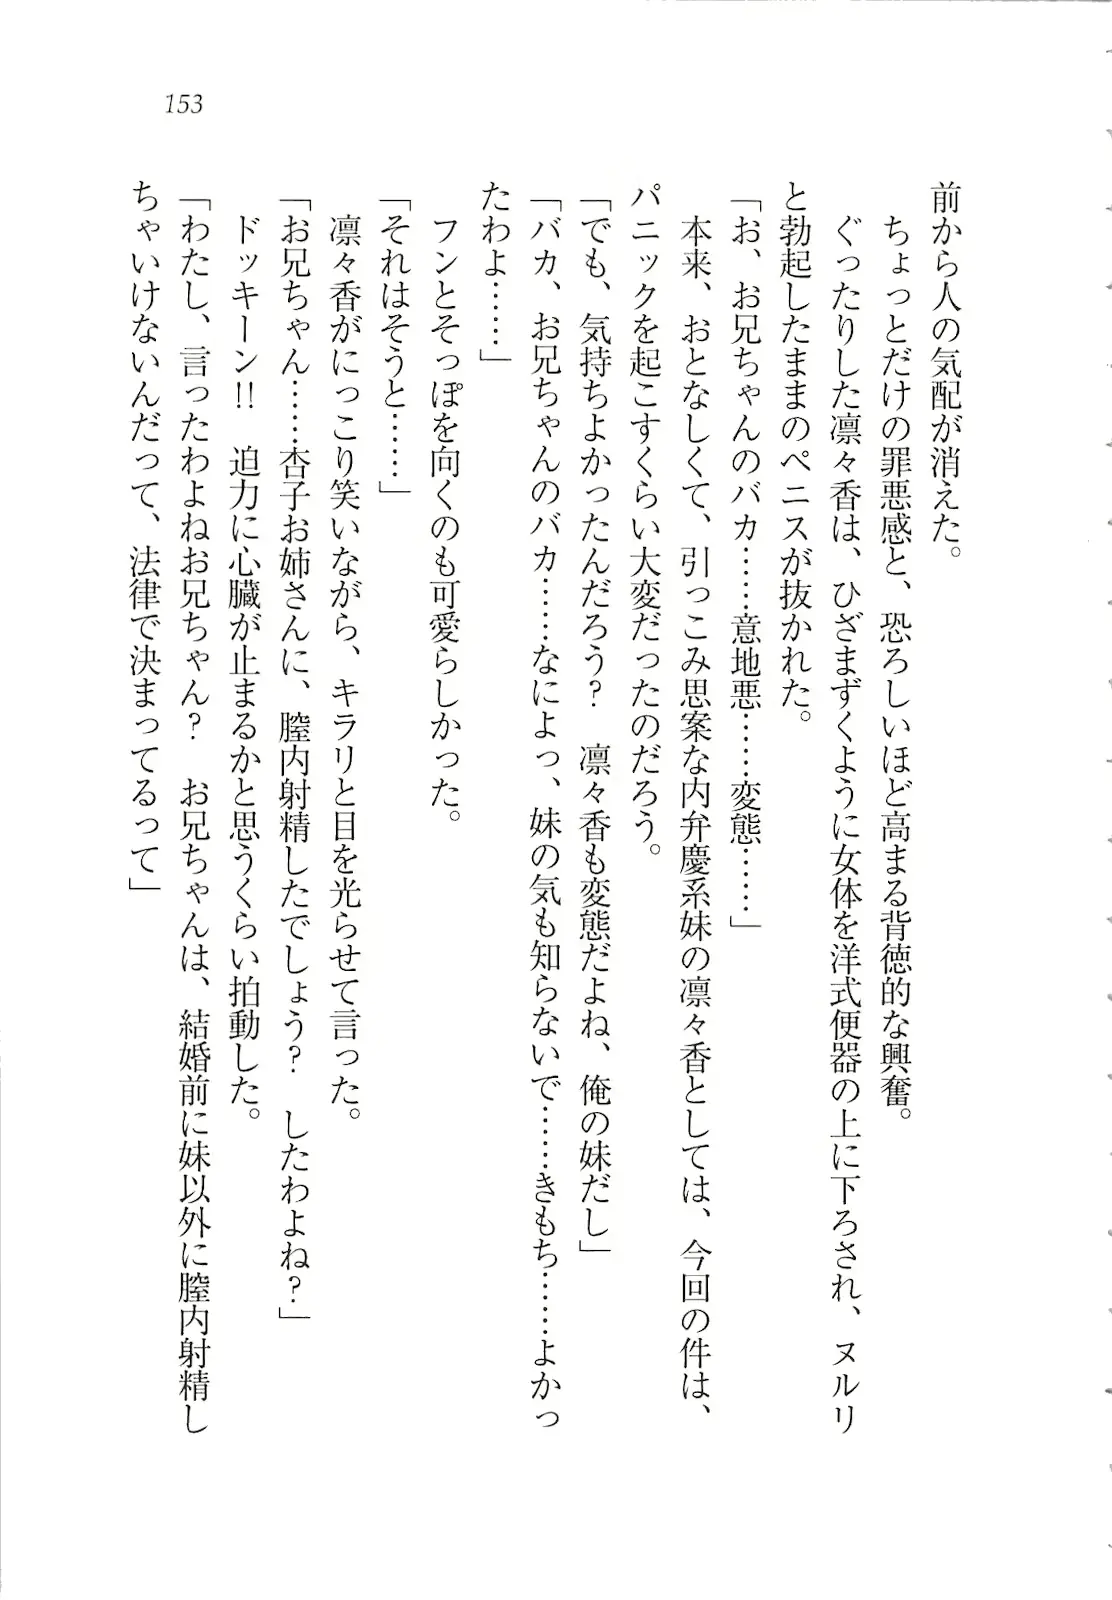 153
前から人の気配が消えた。
ちょっとだけの罪悪感と、恐ろしいほど高まる背徳的な興奮。
ぐったりした凛々香は、ひざまずくように女体を洋式便器の上に下ろされ、ヌルリ
と勃起したままのペニスが抜かれた。
「お、お兄ちゃんのバカ……意地悪……変態……」
本来、おとなしくて、引っこみ思案な内弁慶系妹の凛々香としては、今回の件は、
パニックを起こすくらい大変だったのだろう。
「でも、気持ちよかったんだろう？　凛々香も変態だよね、俺の妹だし」
「バカ、お兄ちゃんのバカ……なによっ、妹の気も知らないで……きもち……よかっ
たわよ……」
フンとそっぽを向くのも可愛らしかった。
「それはそうと……」
凛々香がにっこり笑いながら、キラリと目を光らせて言った。
「お兄ちゃん……杏子お姉さんに、膣内射精したでしょう？　したわよね？」
ドッキーン!!　迫力に心臓が止まるかと思うくらい拍動した。
「わたし、言ったわよねお兄ちゃん？　お兄ちゃんは、結婚前に妹以外に膣内射精し
ちゃいけないんだって、法律で決まってるって」